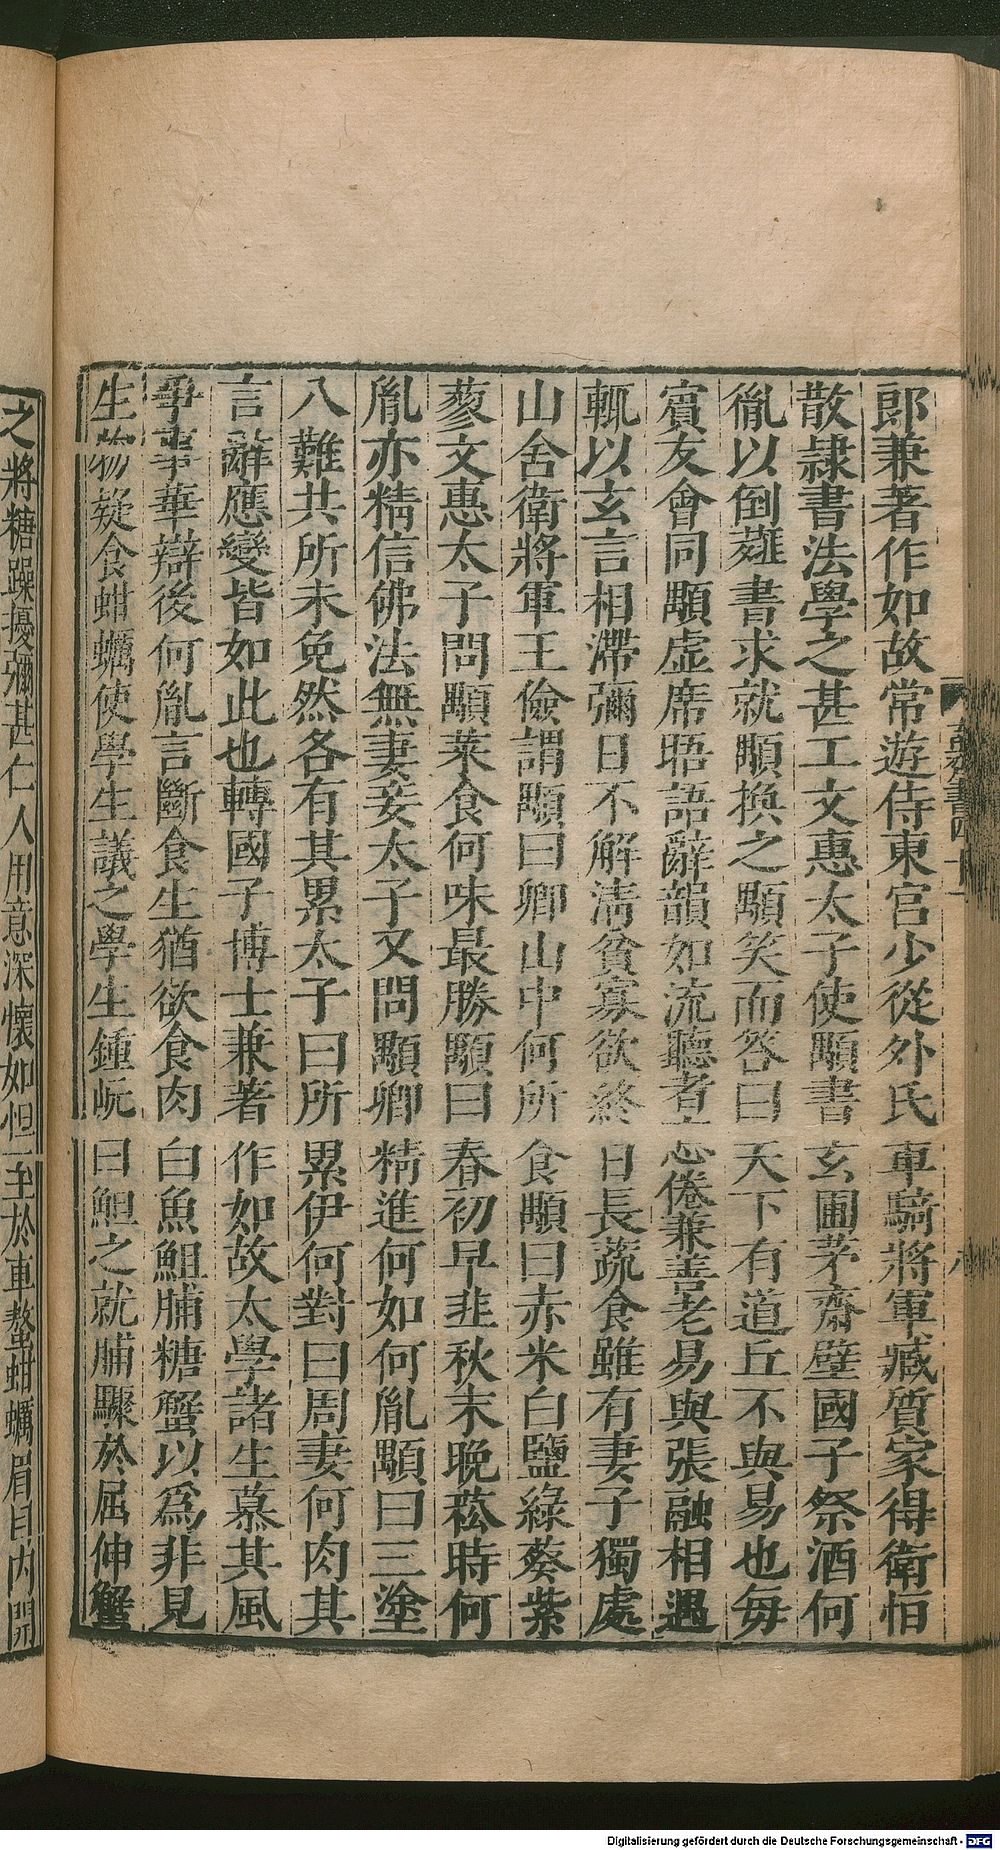 郎兼著作如故常遊侍東宮少從外氏車騎將軍臧質家得衛恒
散隷書法學之甚工文惠太子使顒書玄圃茅齋壁國子祭酒何
胤以倒薤書求就顒換之顒笑而答曰天下有道丘不與易也每
賓友會同顒虛席晤語辭韻如流聽者忘倦兼善老易與張融相遇
輒以玄言相滯彌日不解淸貧寡欲終日長蔬食雖有妻子獨處
山舍衛將軍王儉謂顒曰卿山中何所食顒曰赤米白鹽綠葵紫
蓼文惠太子問顒菜食何味最勝顒曰春初早韭秋末晚菘時何
胤亦精信佛法無妻妾太子又問顒卿精進何如何胤顒曰三塗
八難共所未免然各有其累太子曰所累伊何對曰周妻何肉其
言辭應變皆如此也轉國子博士兼著作如故太學諸生慕其風
爭事華辯後何胤言斷食生猶欲食肉白魚䱉脯糖蟹以爲非見
生物疑食蚶蠣使學生議之學生鍾岏曰䱉之就脯驟於屈伸蟹
之將糖躁擾彌甚仁人用意深懷如怛至於車螯蚶蠣眉目內闕
南齊書四十一
八
Digitalisierung gefördert durch die Deutsche Forschungsgemeinschaft - DFG